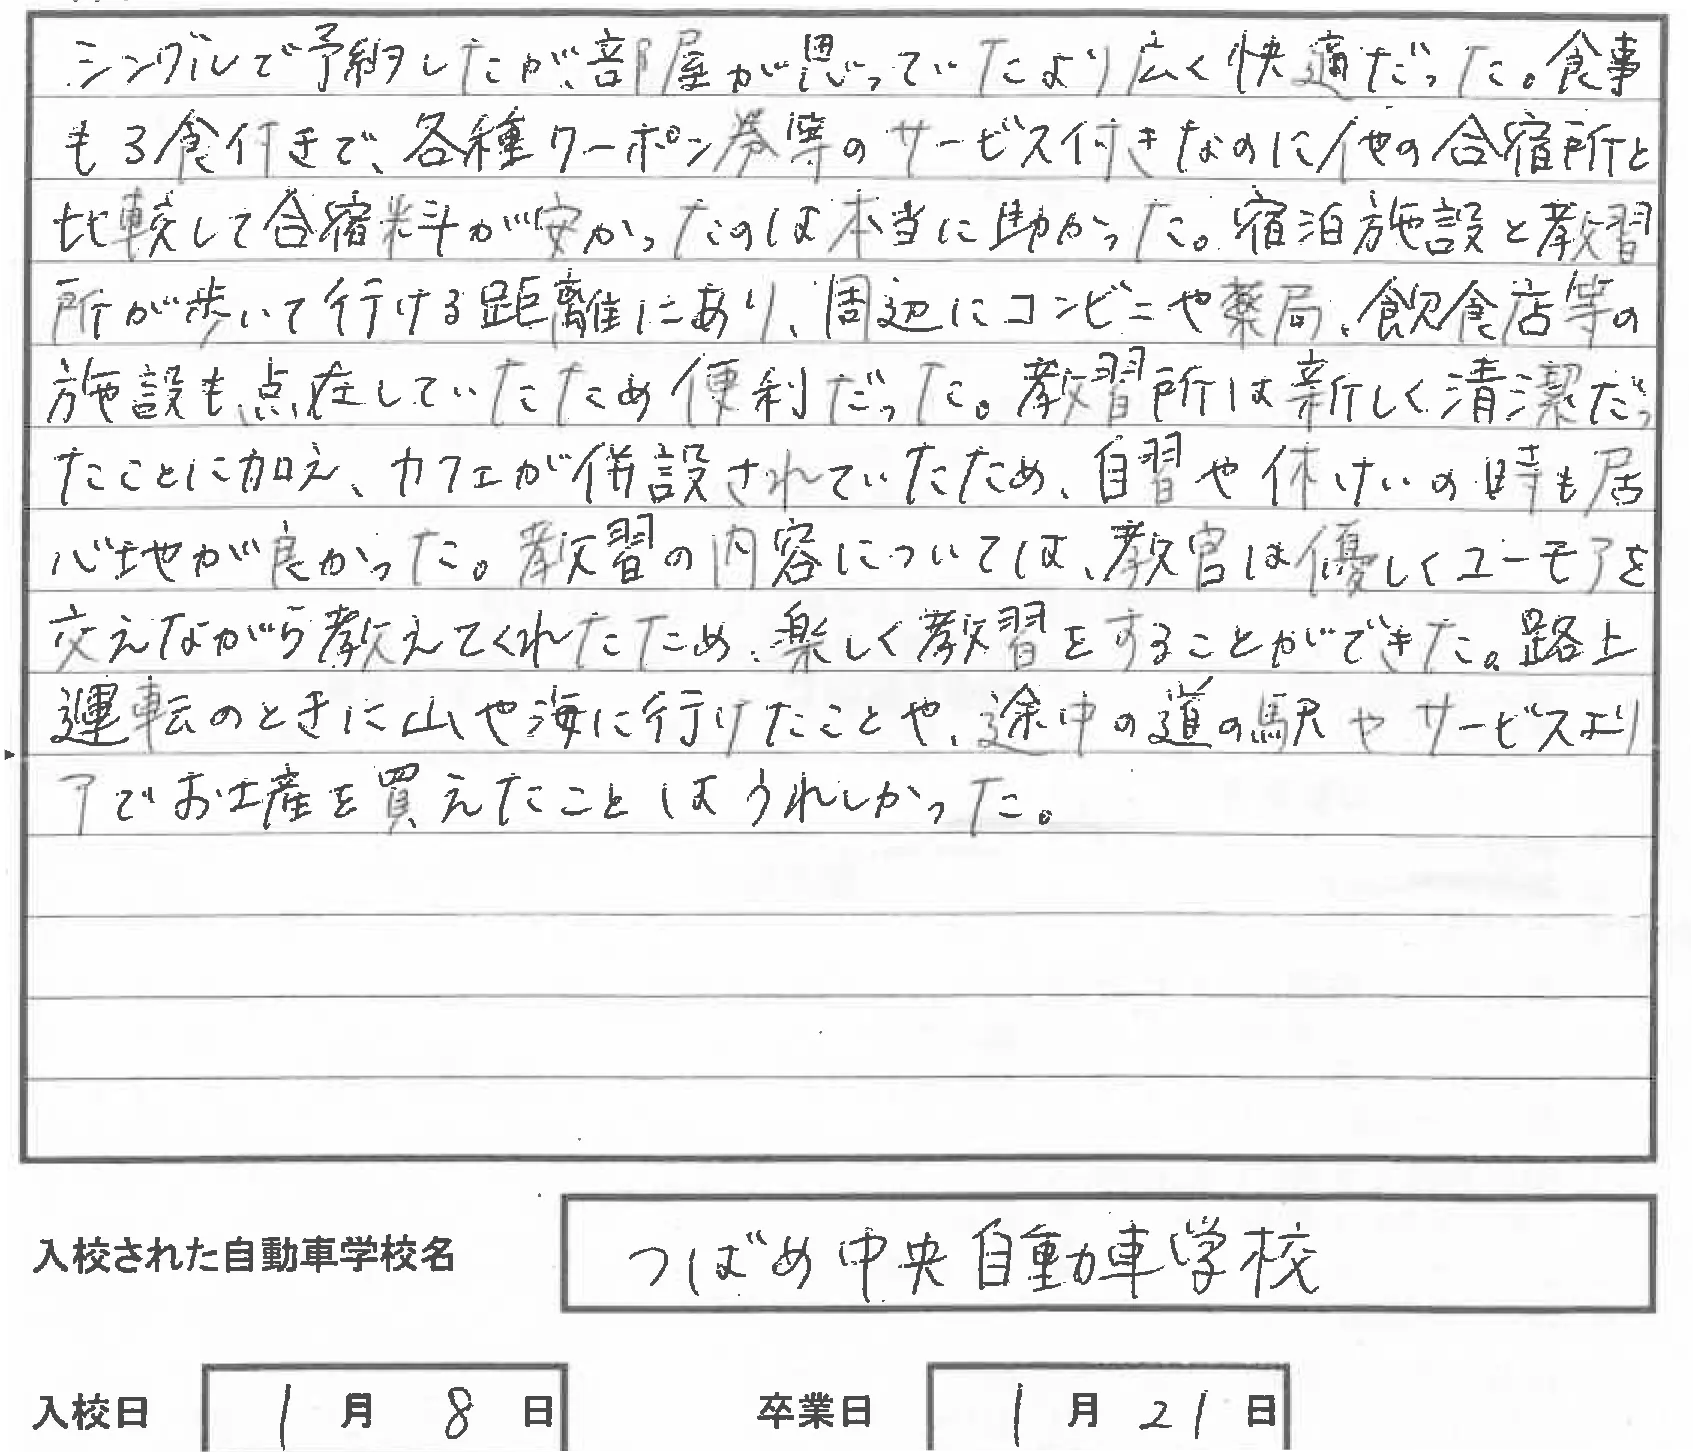 シングルで予約したが、部屋が思っていたより広く快適だった。食事
も3食付きで、各種クーポン券等のサービス付きなのに他の合宿所と
比較して合宿料が安かったのは本当に助かった。宿泊施設と教習
所が歩いて行ける距離にあり、周辺にコンビニや薬局、飲食店等の
施設も点在していたため便利だった。教習所は新しく清潔だっ
たことに加え、カフェが併設されていたため、自習や休けいの時も居
心地が良かった。教習の内容については、教官は優しくユーモアを
交えながら教えてくれたため、楽しく教習をすることができた。路上
運転のときに山や海に行けたことや、途中の道の駅やサービスエリ
アでお土産を買えたことはうれしかった。
入校された自動車学校名 つばめ中央自動車学校
入校日 1月8日 卒業日 1月21日